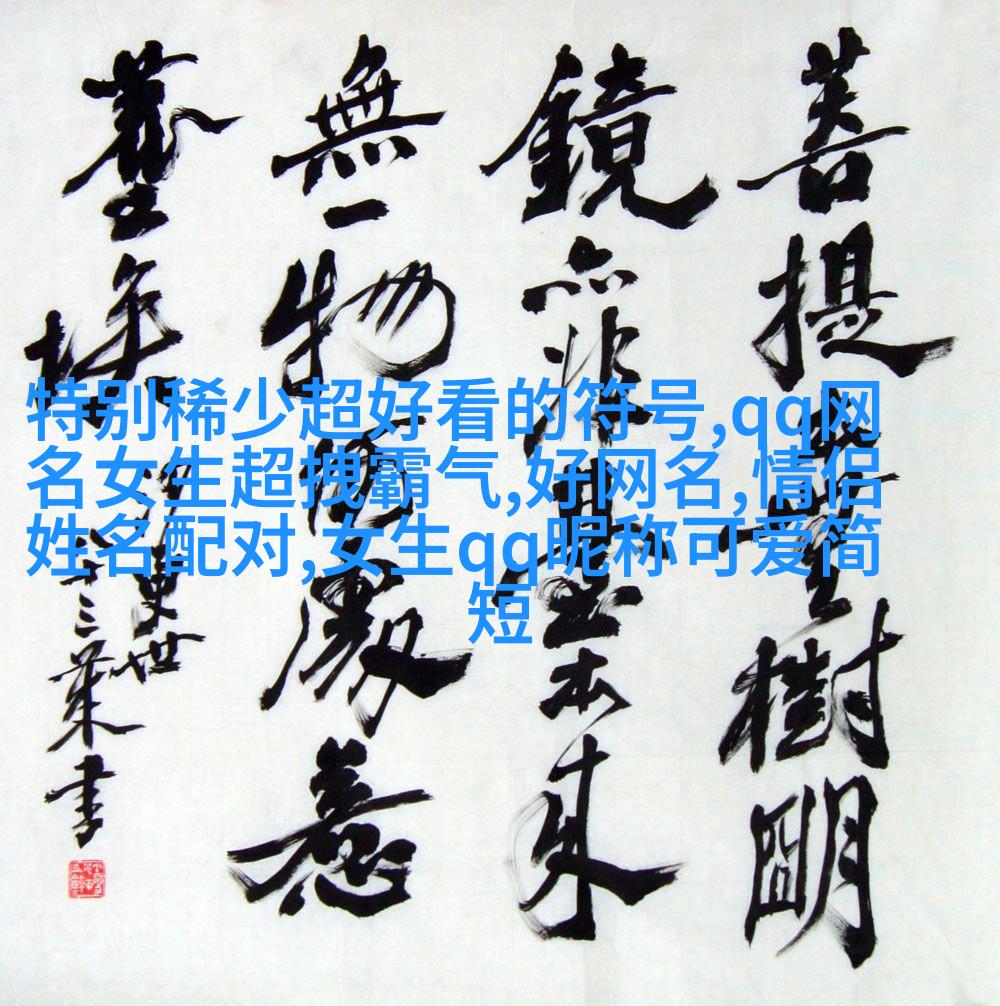 菩提樹明
鏡亦非臺本来
無一物何處惹
塵埃
特别稀少超好看的符号,qq网
名女生超拽霸气,好网名,情侣
姓名配对,女生qq昵称可爱简
短